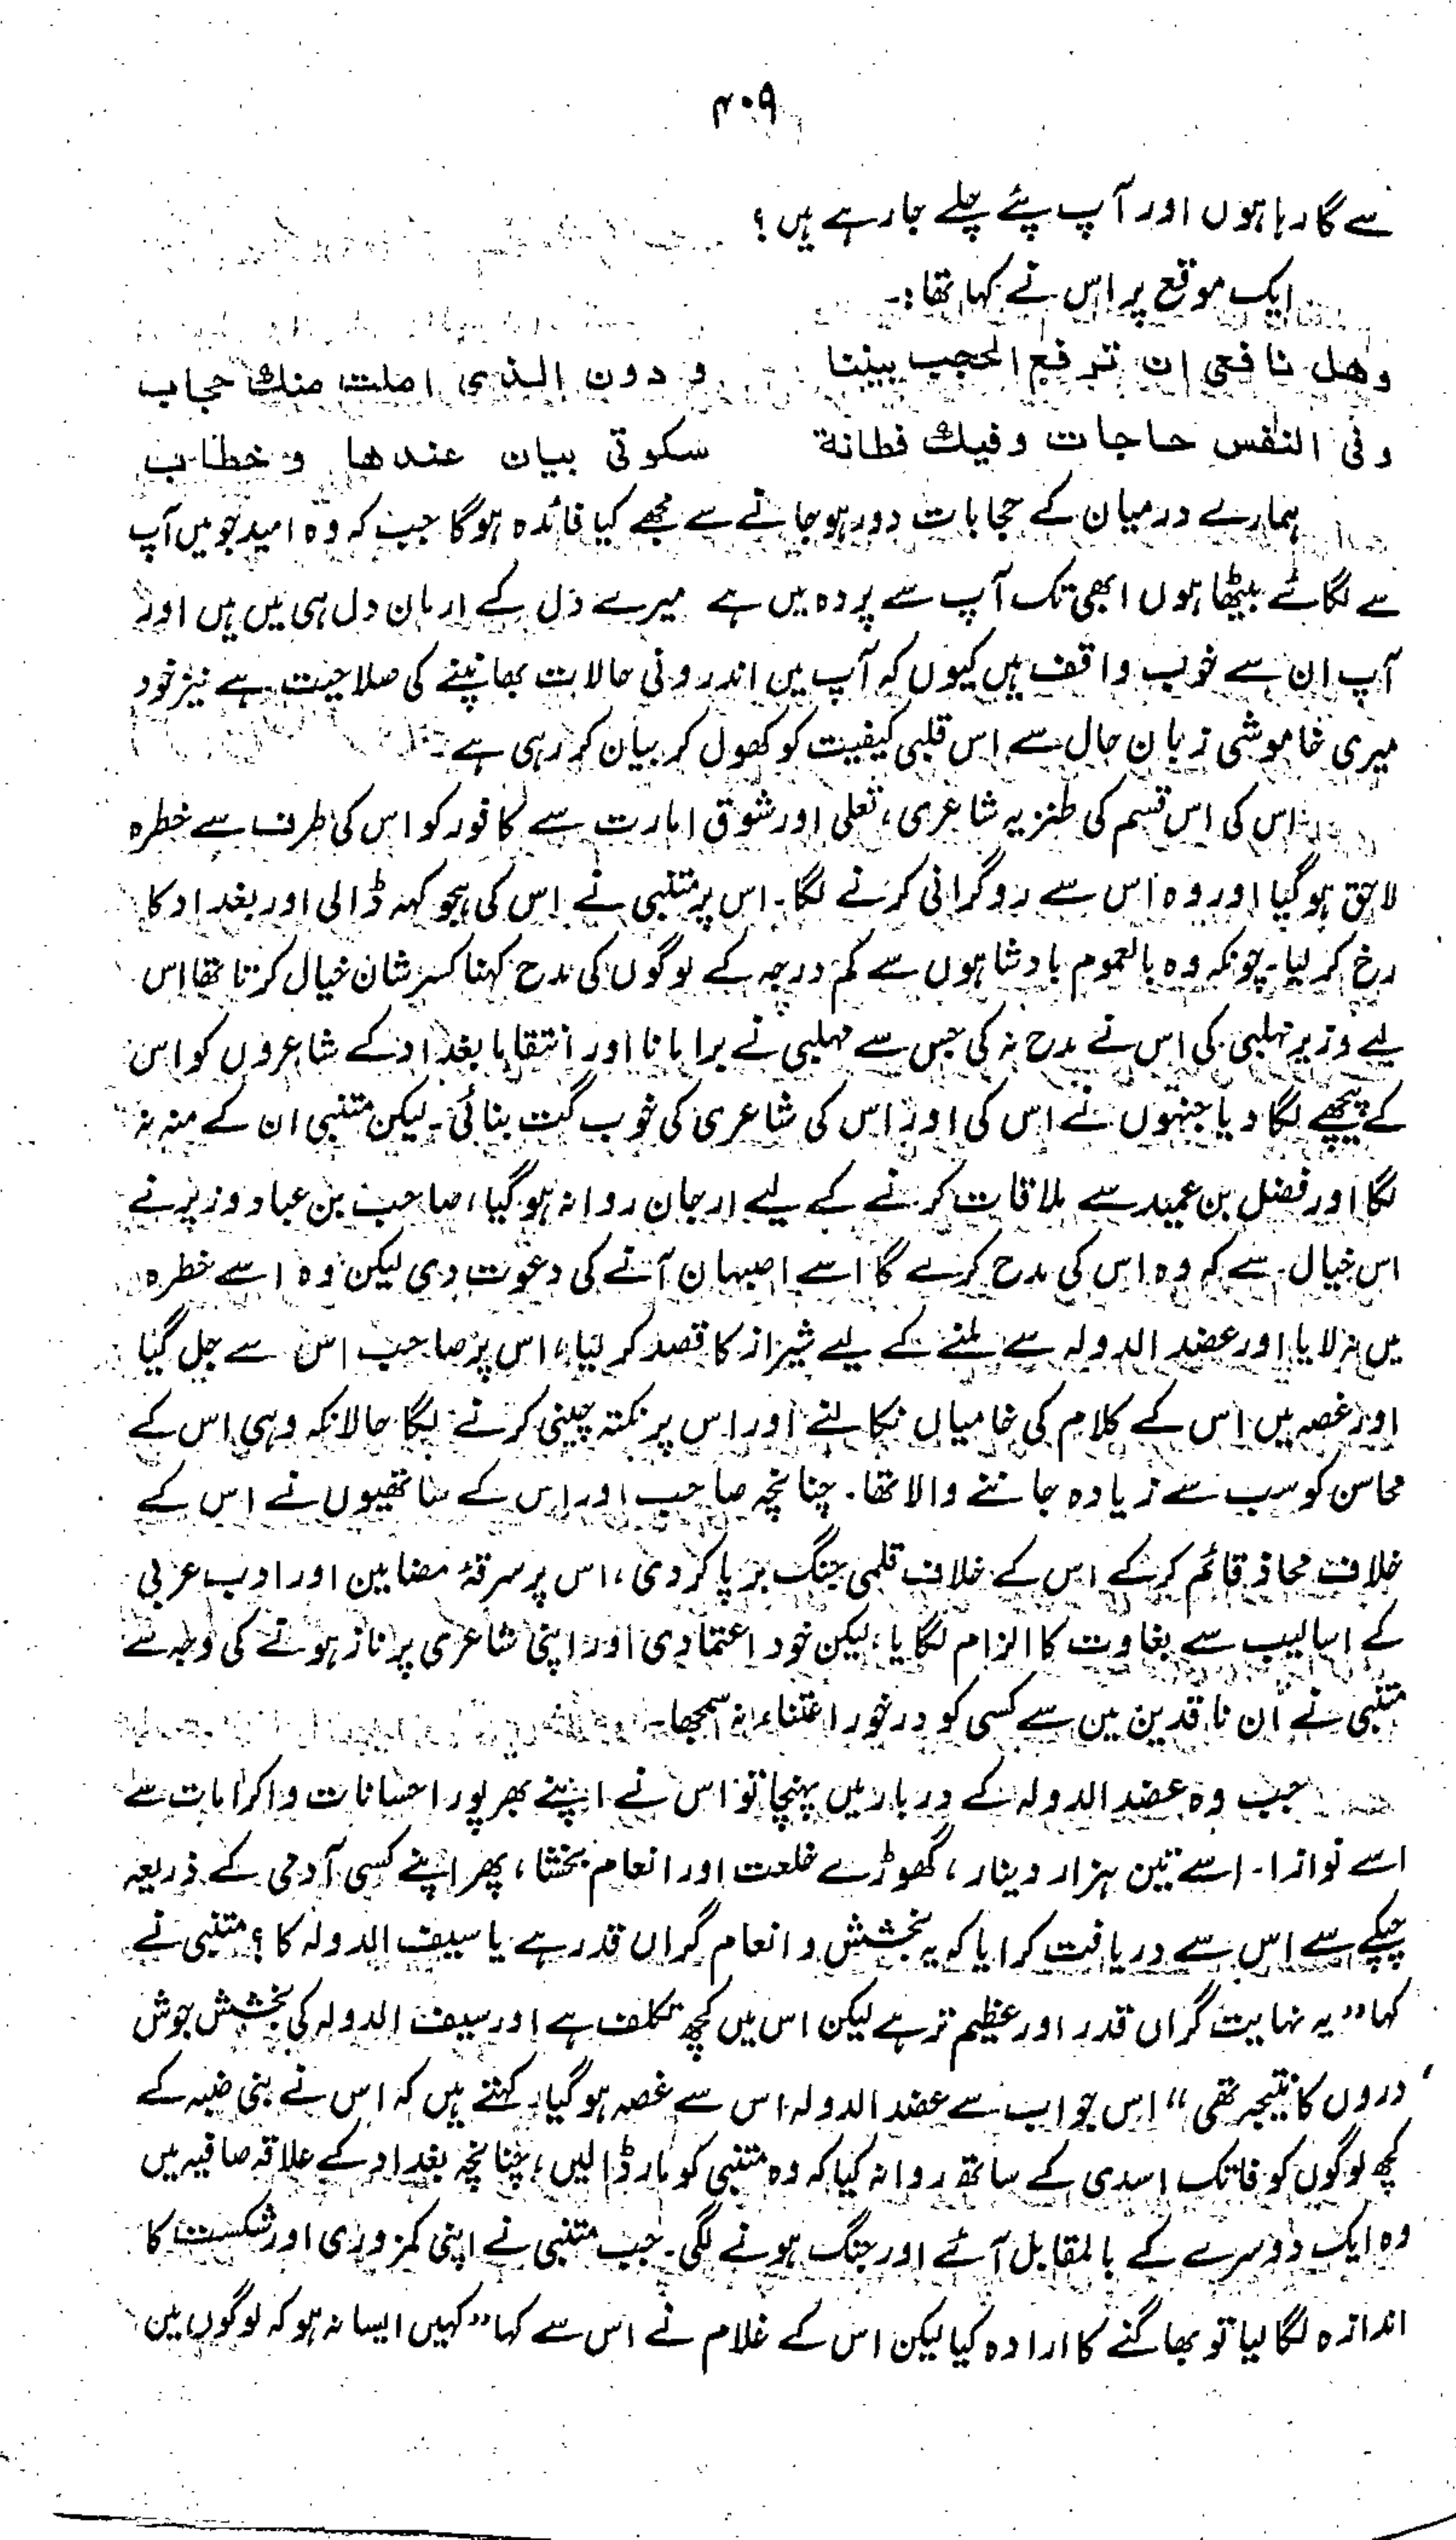 ۴۰۹
سے گا رہا ہوں اور آپ پئے چلے جا رہے ہیں؟
ایک موقع پر اس نے کہا تھا:-
وهل نافعی ان ترفع الحجب بیننا و دون الذی املت منك حجاب
وفی النفس حاجات وفیك فطانة سکوتی بیان عندها وخطاب
ہمارے درمیان کے حجابات دور ہو جانے سے مجھے کیا فائدہ ہوگا جب کہ وہ امید جو میں آپ
سے لگائے بیٹھا ہوں ابھی تک آپ سے پردہ میں ہے میرے دل کے ارمان دل ہی میں ہیں اور
آپ ان سے خوب واقف ہیں کیوں کہ آپ میں اندرونی حالات بھانپنے کی صلاحیت ہے نیز خود
میری خاموشی زبان حال سے اس قلبی کیفیت کو کھول کر بیان کر رہی ہے۔
اس کی اس قسم کی طنزیہ شاعری، تعلی اور شوق امارت سے کافور کو اس کی طرف سے خطرہ
لاحق ہو گیا اور وہ اس سے روگرانی کرنے لگا۔ اس پر متنبی نے اس کی ہجو کہہ ڈالی اور بغداد کا
رخ کر لیا۔ چونکہ وہ بالعموم بادشاہوں سے کم درجہ کے لوگوں کی مدح کہنا کسر شان خیال کرتا تھا اس
لیے وزیر مہلبی کی اس نے مدح نہ کی جس سے مہلبی نے برا مانا اور انتقاماً بغداد کے شاعروں کو اس
کے پیچھے لگا دیا جنہوں نے اس کی اور اس کی شاعری کی خوب گت بنائی۔ لیکن متنبی ان کے منہ نہ
لگا اور فضل بن عمید سے ملاقات کرنے کے لیے ارجان روانہ ہو گیا، صاحب بن عباد وزیر نے
اس خیال سے کہ وہ اس کی مدح کرے گا اسے اصبہان آنے کی دعوت دی لیکن وہ اسے خطرہ
میں نہ لایا اور عضد الدولہ سے ملنے کے لیے شیراز کا قصد کر لیا، اس پر صاحب اس سے جل گیا
اور غصہ میں اس کے کلام کی خامیاں نکالنے اور اس پر نکتہ چینی کرنے لگا حالانکہ وہی اس کے
محاسن کو سب سے زیادہ جاننے والا تھا۔ چنانچہ صاحب اور اس کے ساتھیوں نے اس کے
خلاف محاذ قائم کر کے اس کے خلاف قلمی جنگ برپا کر دی، اس پر سرقۂ مضامین اور ادب عربی
کے اسالیب سے بغاوت کا الزام لگایا، لیکن خود اعتمادی اور اپنی شاعری پر ناز ہونے کی وجہ سے
متنبی نے ان ناقدین میں سے کسی کو درخور اعتناء نہ سمجھا۔
جب وہ عضد الدولہ کے دربار میں پہنچا تو اس نے اپنے بھرپور احسانات واکرامات سے
اسے نوازا۔ اسے تین ہزار دینار، گھوڑے خلعت اور انعام بخشا، پھر اپنے کسی آدمی کے ذریعہ
چپکے سے اس سے دریافت کرایا کہ یہ بخشش و انعام گراں قدر ہے یا سیف الدولہ کا؟ متنبی نے
کہا "یہ نہایت گراں قدر اور عظیم تر ہے لیکن اس میں کچھ تکلف ہے اور سیف الدولہ کی بخشش جوش
دروں کا نتیجہ تھی" اس جواب سے عضد الدولہ اس سے غصہ ہو گیا۔ کہتے ہیں کہ اس نے بنی ضبہ کے
کچھ لوگوں کو فاتک اسدی کے ساتھ روانہ کیا کہ وہ متنبی کو مار ڈالیں، چنانچہ بغداد کے علاقہ صافیہ میں
وہ ایک دوسرے کے بالمقابل آئے اور جنگ ہونے لگی۔ جب متنبی نے اپنی کمزوری اور شکست کا
اندازہ لگا لیا تو بھاگنے کا ارادہ کیا لیکن اس کے غلام نے اس سے کہا "کہیں ایسا نہ ہو کہ لوگوں میں